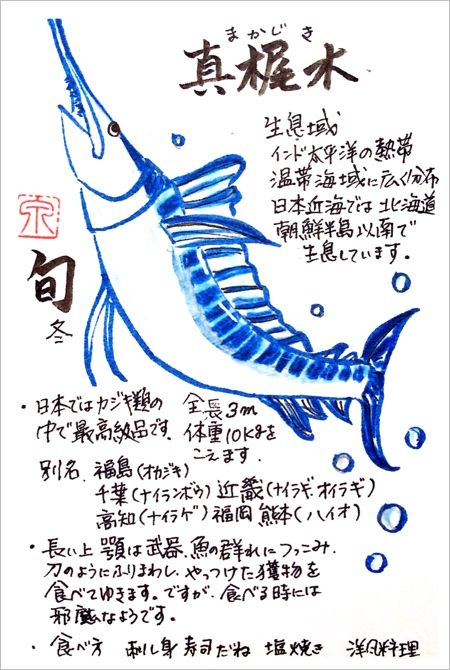 まかじき
真梶木
生息域
インド太平洋の熱帯
温帯海域に広く分布
日本近海では北海道
朝鮮半島以南で
生息しています。
旬
冬
・日本ではカジキ類の
中で最高級品です。
全長3m
体重10kgを
こえます.
別名. 福島(オカジキ)
千葉(ナイランボウ) 近畿(ナイラギ オイラギ)
高知(ナイラゲ) 福岡 熊本(ハイオ)
・長い上顎は武器.魚の群れにつっこみ.
刀のようにふりまわし.やっつけた獲物を
食べてゆきます。ですが、食べる時には
邪魔なようです。
・食べ方 刺し身 寿司だね 塩焼き 洋風料理